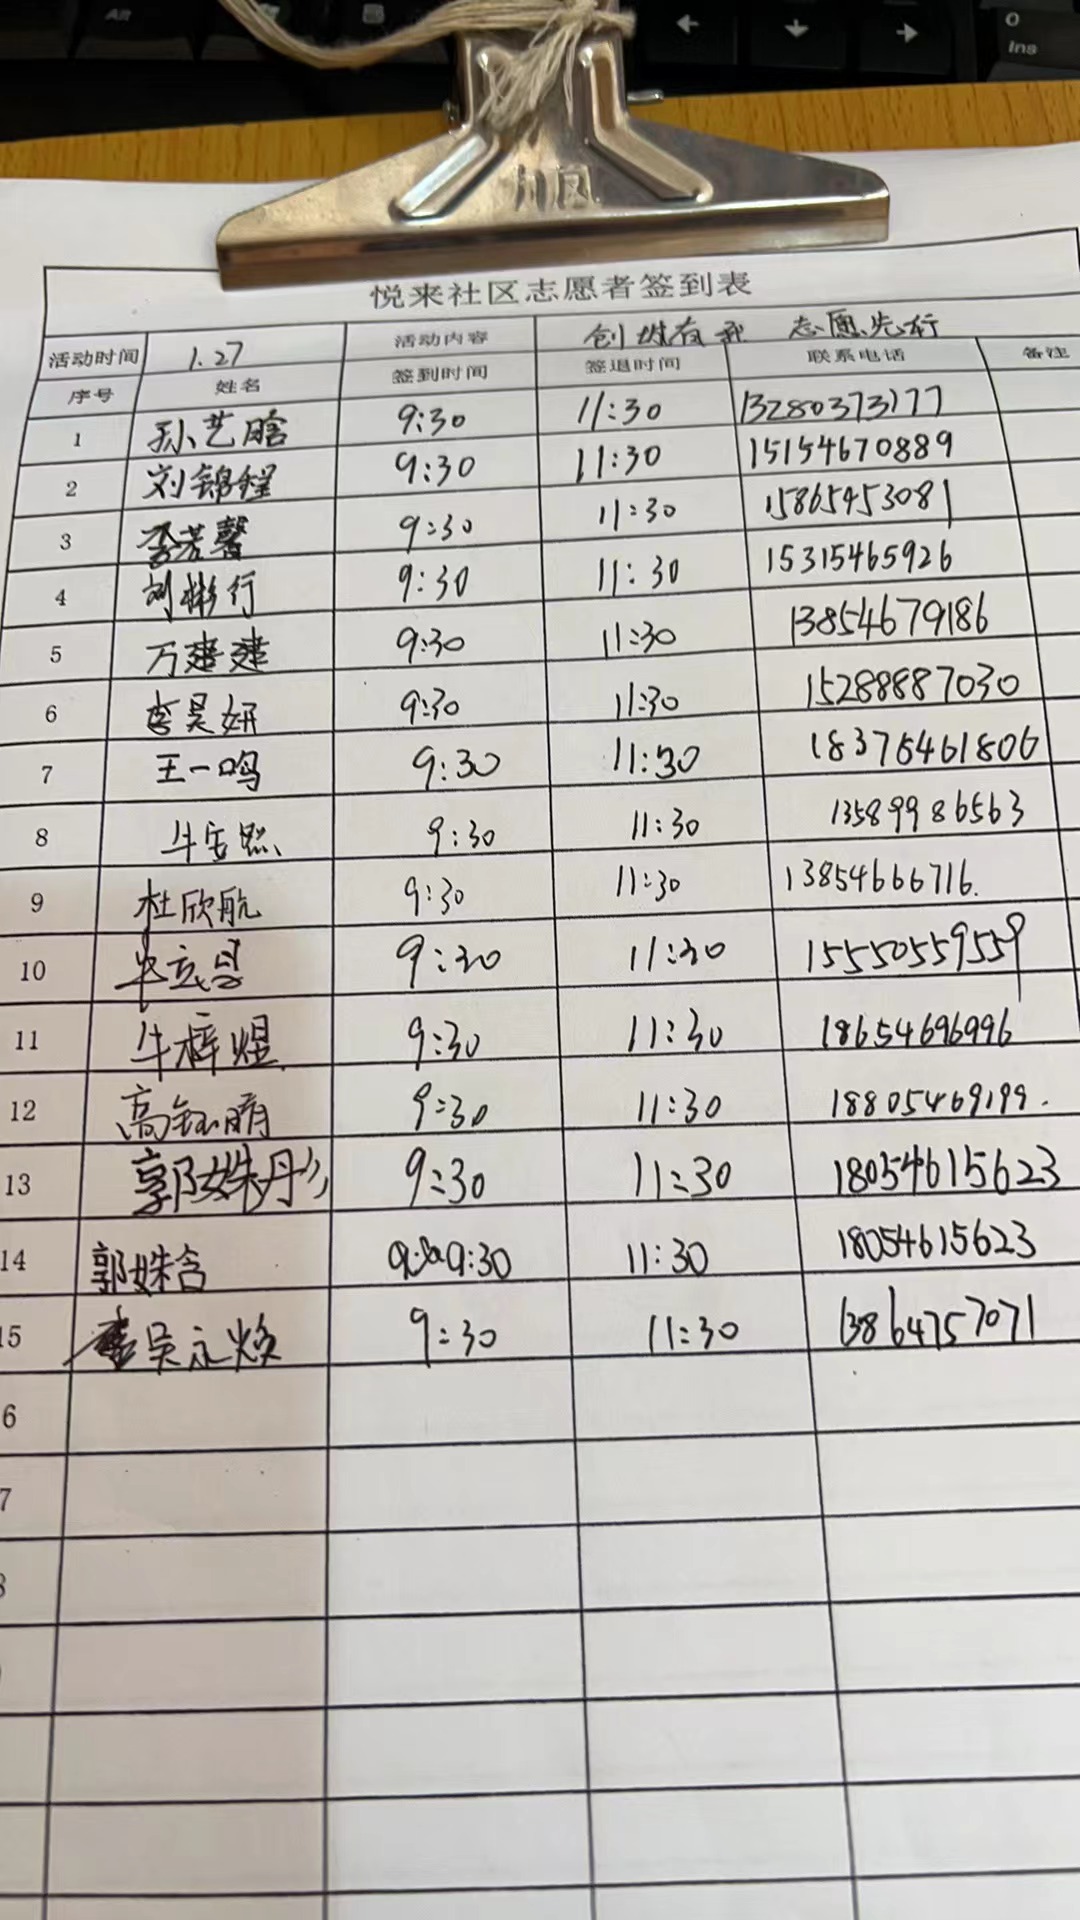 Alt
O
Ins
悦来社区志愿者签到表
活动时间 1.27 活动内容 创城有我 志愿先行
序号 姓名 签到时间 签退时间 联系电话 备注
1 孙艺晗 9:30 11:30 13280373177
2 刘锦程 9:30 11:30 15154670889
3 李芳馨 9:30 11:30 15865453081
4 刘彬行 9:30 11:30 15315465926
5 万建建 9:30 11:30 13854679186
6 李昊妍 9:30 11:30 15288887030
7 王一鸣 9:30 11:30 18376461806
8 9:30 11:30 13589986563
9 杜欣航 9:30 11:30 13854666716.
10 9:30 11:30 15550559559
11 牛梓煜 9:30 11:30 18654696996
12 高钰晴 9:30 11:30 18805469199.
13 郭姝彤 9:30 11:30 18054615623
14 郭姝含 9:30 11:30 18054615623
15 吴永焕 9:30 11:30 13864757071
6
7
8